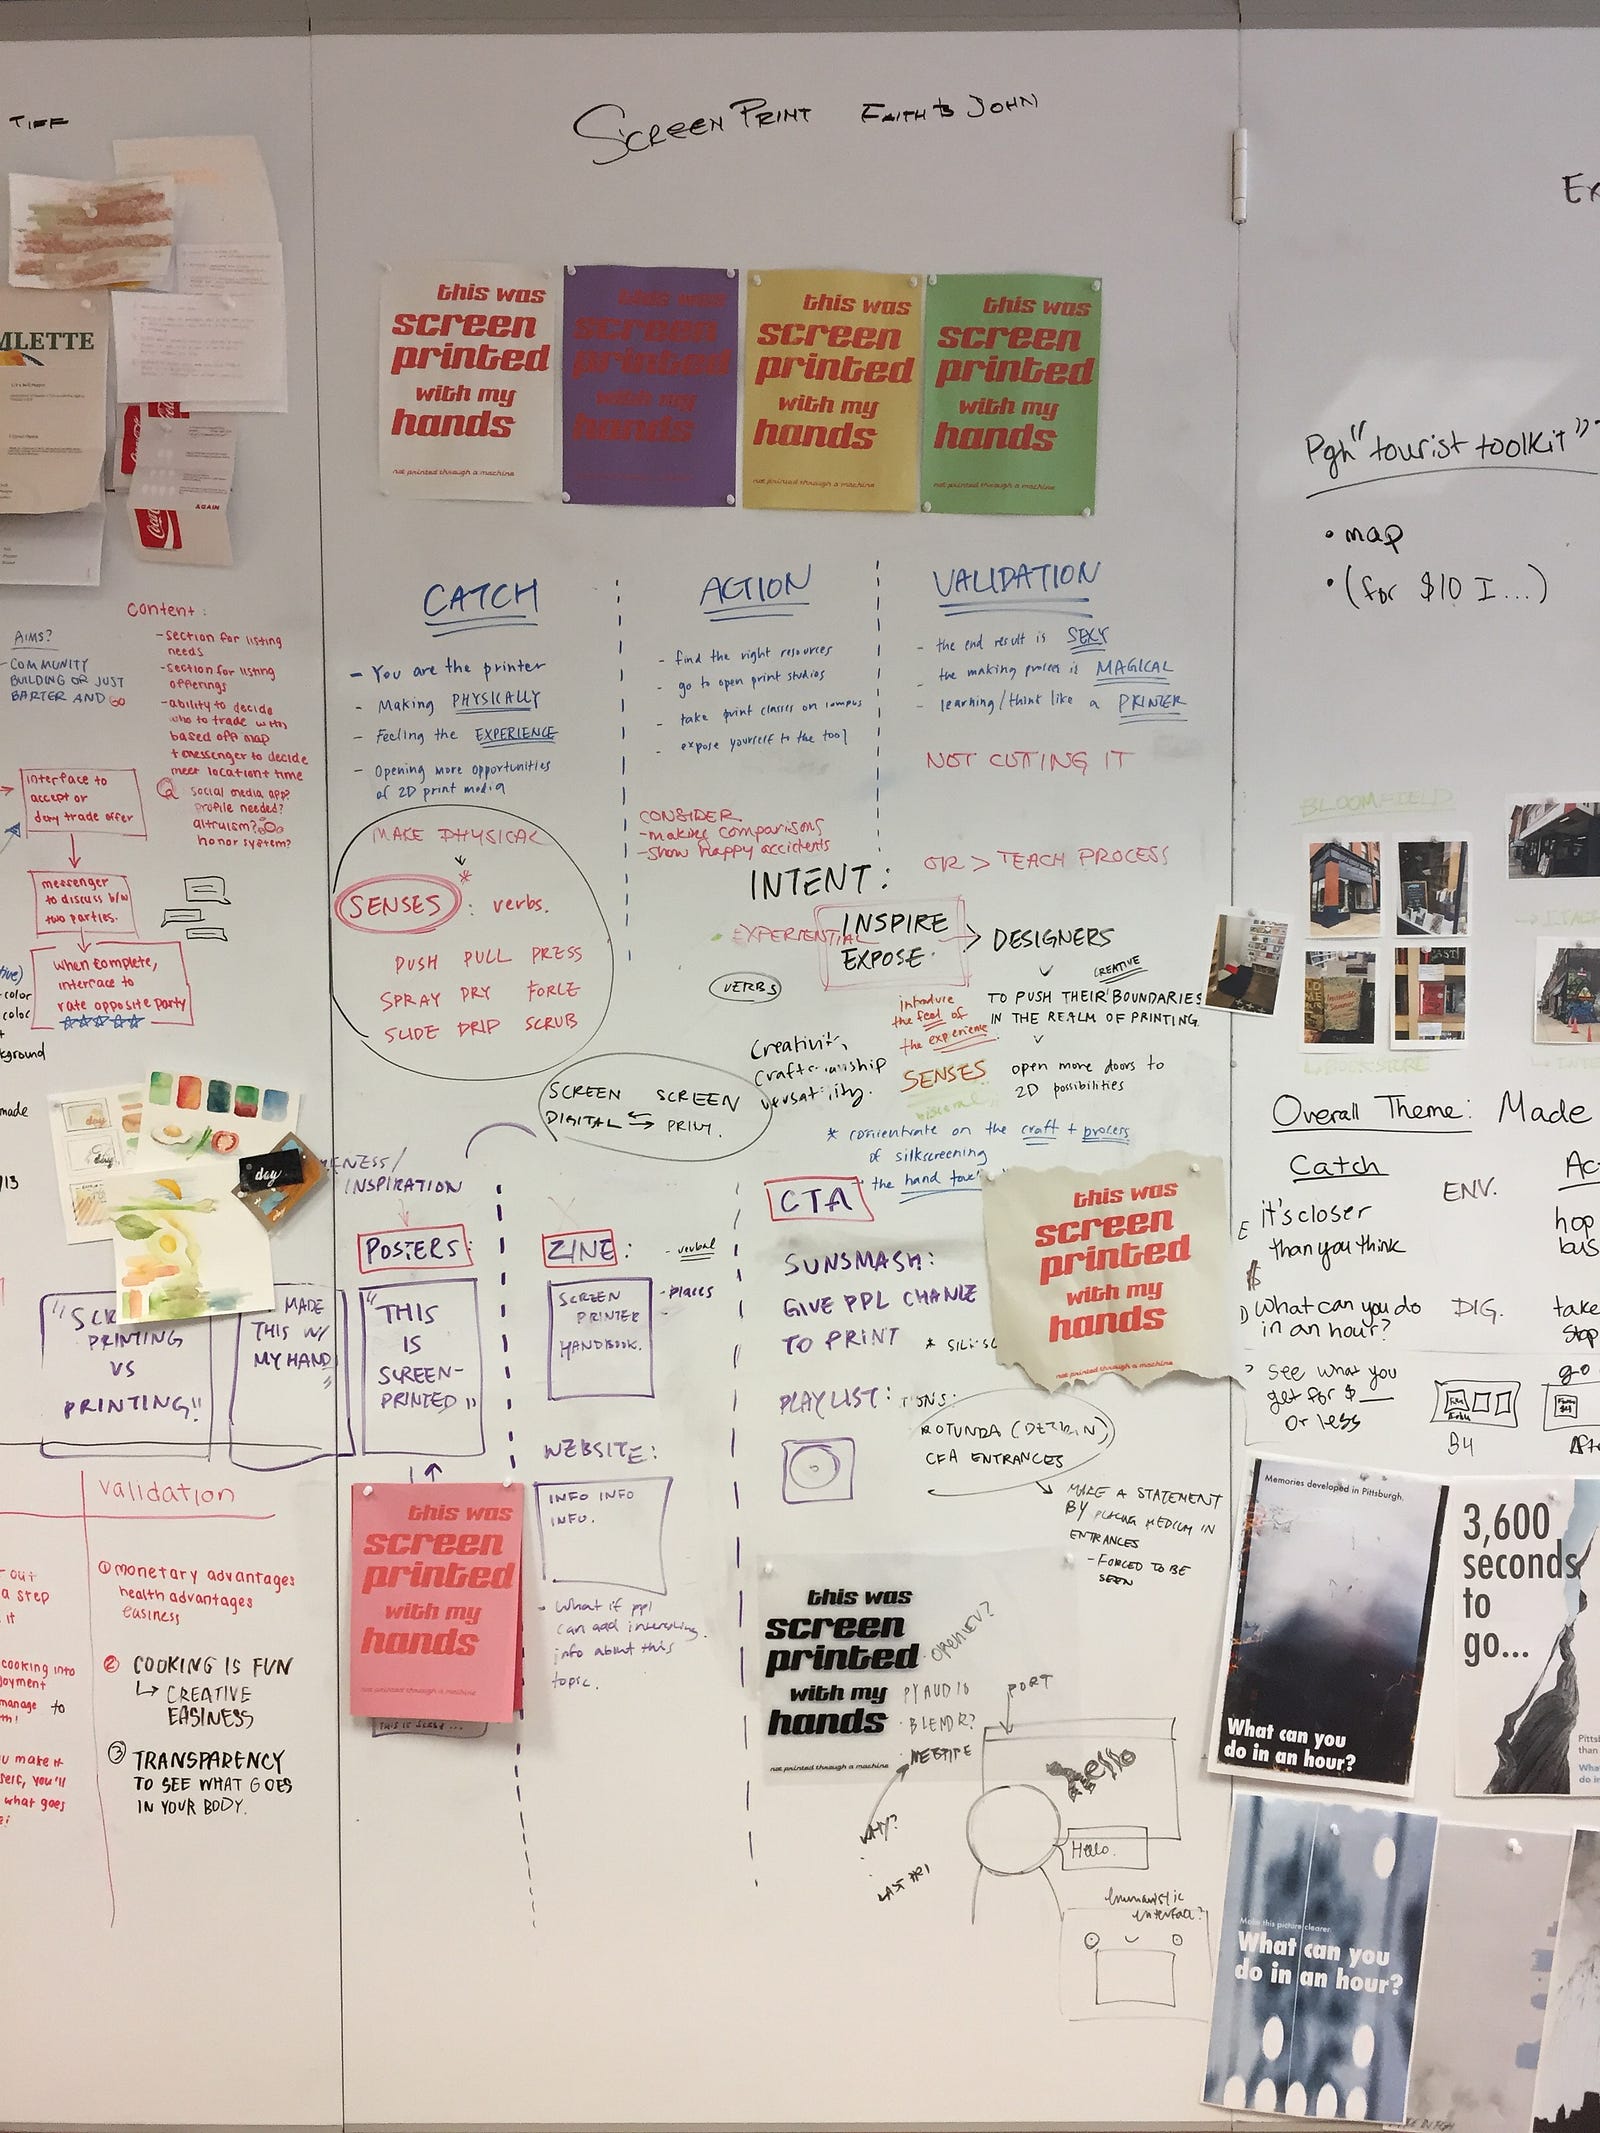 TIFF
SCREEN PRINT FAITH & JOHN
MLETTE
AGAIN
this was
screen
printed
with my
hands
not printed through a machine
this was
screen
printed
with my
hands
this was
screen
printed
with my
hands
not printed through a machine
this was
screen
printed
with my
hands
not printed through a machine
Pgh "tourist toolkit"
• map
• (for $10 I...)
AIMS?
- COMMUNITY
BUILDING OR JUST
BARTER AND GO
content:
- section for listing
needs
- section for listing
offerings
- ability to decide
who to trade with
based off map
+ messenger to decide
meet location + time
social media app?
profile needed?
altruism?
honor system?
interface to
accept or
deny trade offer
messenger
to discuss b/w
two parties.
when complete,
interface to
rate opposite party
CATCH
- You are the printer
- Making PHYSICALLY
- Feeling the EXPERIENCE
- Opening more opportunities
of 2D print media
ACTION
- find the right resources
- go to open print studios
- take print classes on campus
- expose yourself to the tool
VALIDATION
- the end result is SEXY
- the making process is MAGICAL
- learning/think like a PRINTER
NOT CUTING IT
OR > TEACH PROCESS
CONSIDER
- making comparisons
- show happy accidents
MAKE PHYSICAL
SENSES : verbs.
PUSH PULL PRESS
SPRAY DRY FORCE
SLIDE DRIP SCRUB
INTENT:
EXPERIENTIAL
INSPIRE
EXPOSE
DESIGNERS
VERBS
CREATIVE
TO PUSH THEIR BOUNDARIES
IN THE REALM OF PRINTING
introduce
the feel of
the experience
SENSES
visceral
open more doors to
2D possibilities
* concentrate on the craft + process
of silkscreening
the hand
SCREEN SCREEN
DIGITAL PRINT.
BLOOMFIELD
BOOKSTORE
day
INSPIRATION
POSTERS:
PRINTING
VS
PRINTING"
MADE
THIS W/
MY HAND
"
"THIS
IS
SCREEN-
PRINTED"
ZINE:
- verbal
- places
SCREEN
PRINTER
HANDBOOK.
WEBSITE:
INFO INFO
INFO.
- What if ppl
can add interesting
info about this
topic.
CTA
SUNSMASH:
GIVE PPL CHANCE
TO PRINT
PLAYLIST:
ROTUNDA
CFA ENTRANCES
MAKE A STATEMENT
BY PLACING MEDIUM IN
ENTRANCES
- FORCED TO BE
SEEN
this was
screen
printed
with my
hands
not printed through a machine
this was
screen
printed
with my
hands
not printed through a machine
this was
screen
printed
with my
hands
not printed through a machine
PYAUDIO
PORT
WHY?
Hello.
hello
humanistic
interface?
Overall Theme: Made
Catch
ENV.
it's closer
than you think
hop
bus
What can you do
in an hour?
DIG.
take
stop
see what you
get for $
or less
go
B4
validation
① monetary advantages
health advantages
easiness
② COOKING IS FUN
↳ CREATIVE
EASINESS
③ TRANSPARENCY
TO SEE WHAT GOES
IN YOUR BODY.
Memories developed in Pittsburgh.
What can you
do in an hour?
3,600
seconds
to
go...
Make this picture clearer.
What can you
do in an hour?